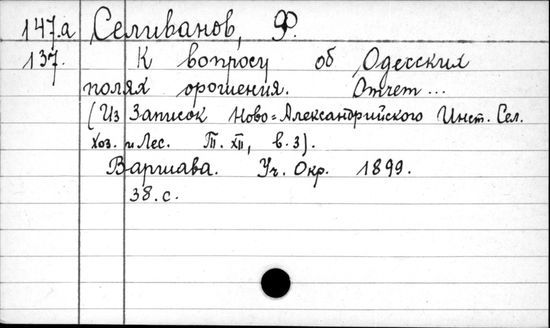 147.а Селиванов, Ф.
137. К вопросу об Одесских
полях орошения. Отчет...
(Из Записок Ново=Александрийского Инст. Сел.
Хоз. и Лес. Т. XII, в. 3).
Варшава. Уч. Окр. 1899.
38. с.